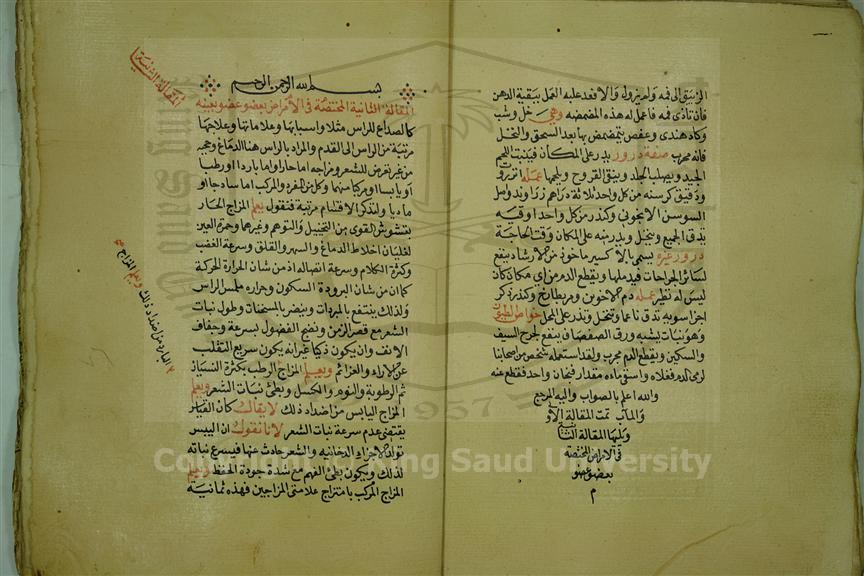 الزيبق الى فمه ولم يزول والا فعد عليه العمل ببقية الدهن
فان تأذى فمه فاعمل له هذه المضمضه وهي خل وشب
وكاد هندى وعفص يتمضمض بها بعد السحق والنخل
فانه مجرب صفة درور يدر على المكان فينبت اللحم
الجيد ويصلب الجلد وينقي القروح ويلحمها عمله انزروت
ودقيق كرسنه من كل واحد ثلاثة دراهم زراوند واصل
السوسن الايجونى وكندر من كل واحد اوقيه
يدق الجميع وينخل ويدر منه على المكان وقت الحاجة
درور غيره يسمى الاكسير ماخوذ من الارشاد ينفع
لسائر الجراحات فيدملها ويقطع الدم من اى مكان كان
ليس له نظير عمله دم الاخوين ومر بطارخ وكندر ذكر
اجزا سويه تدق ناعما وتنخل وتدر على المحل خواص
وهو نبات يشبه ورق الصفصاف ينفع لجرح السيف
والسكين ويقطع الدم مجرب ولقد استعمله شخص من اصحابنا
لرمى الدم فغلاه واسقى ماءه مقدار فنجان واحد فقطع عنه
والله اعلم بالصواب واليه المرجع
والمآب تمت المقالة الاو
ويليها المقالة الثانية
في الامراض المختصة
بعضو عضو
م
المقالة الثانية
بسم الله الرحمن الرحيم
المقالة الثانية المختصة في الأمراض بعضو عضو بعينه
كالصداع للراس مثلا واسبابها وعلاماتها وعلاجها
مرتبة من الراس الى القدم والمراد بالراس هنا الدماغ وحجبه
من غير تعرض للشعر ومزاجه اما حارا او باردا او رطبا
او يابسا او مركبا منهما وكل من المفرد والمركب اما ساذجا او
ماديا ولنذكر الاقسام مرتبة فنقول يعلم المزاج الحار
بتشويش القوى من التخييل والتوهم وغيرهما وحمرة العين
لغليان اخلاط الدماغ والسهر والقلق وسرعة الغضب
وكثرة الكلام وسرعة انفصاله اذ من شان الحرارة الحركة
كما ان من شان البرودة السكون وحراره ملمس الراس
ولذلك ينتفع بالمبردات ويتضر بالمسخنات وطول نبات
الشعر مع قصر الزمن ونضج الفضول بسرعة وجفاف
الانف وان يكون ذكيا غير انه يكون سريع التقلب
عن الاراء والعزائم ويعلم المزاج الرطب بكثرة النسيان
ثم الرطوبة والنوم والكسل وبطئ نبات الشعر ويعلم
المزاج اليابس من اضداد ذلك لا يقال كان القياس
يقتضى عدم سرعة نبات الشعر لانا نقول ان اليبس
تولد الاجزاء الدخانية والشعر حادث عنها فيسرع نباته
لذلك ويكون بطئ الفهم مع شدة جودة الحفظ ويعلم
المزاج المركب بامتزاج علامتى المزاجين فهذه ثمانية
ويعلم المزاج البارد من اضداد ذلك
Copyright © King Saud University
1957